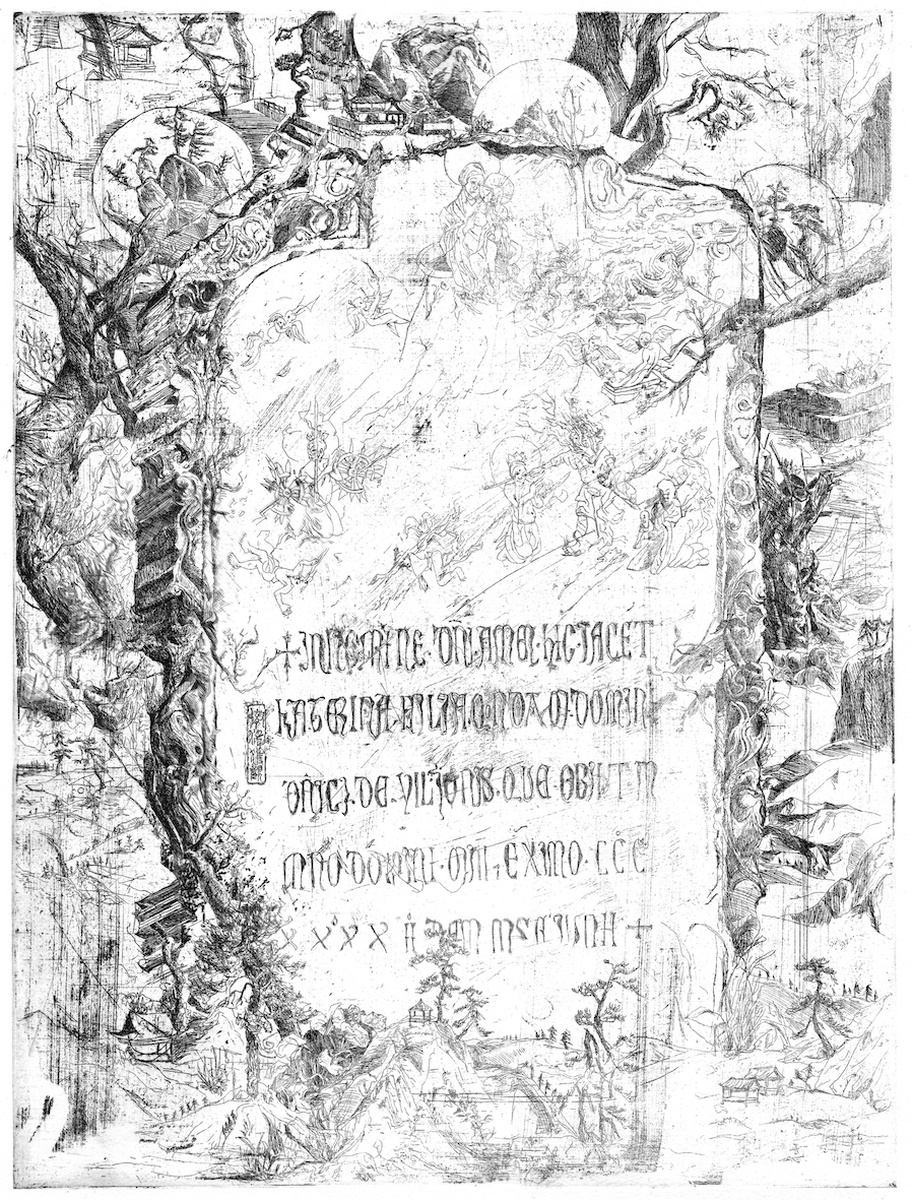 + IN NOMINE · DNI · AMEN · HIC · JACET
KATERINA · FILIA · QNDAM · DOMINI
DNICI · DE · VILIONIS · QUE · OBIIT · IN
ANNO · DOMINI · EXIMO · CCC
XXXX II MENSE JUNII +